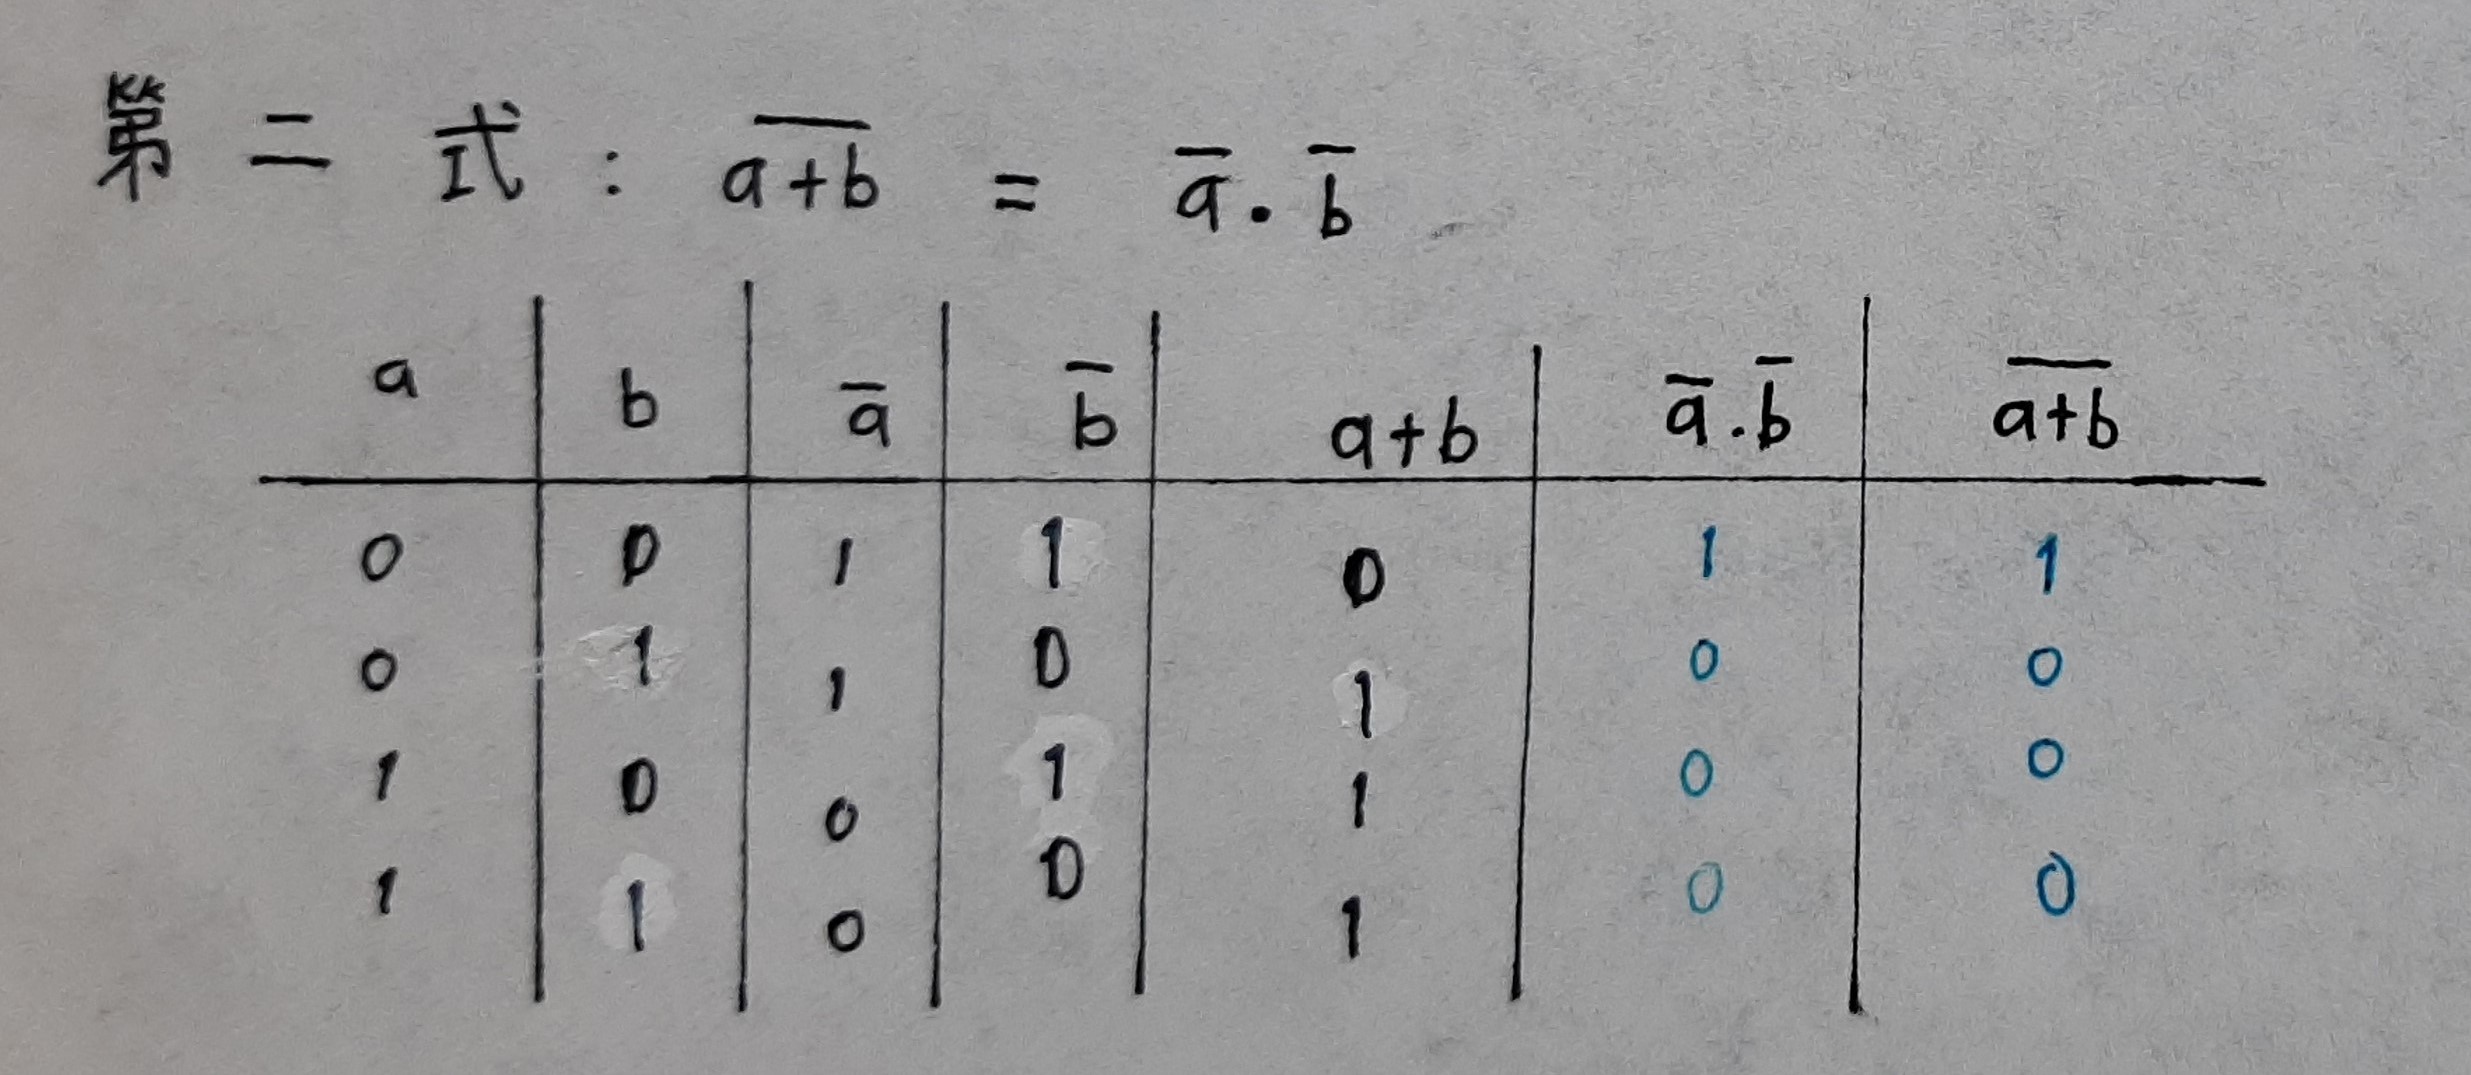 第二式: a̅+̅b̅ = a̅·b̅
a b a̅ b̅ a+b a̅·b̅ a̅+̅b̅
0 0 1 1 0 1 1
0 1 1 0 1 0 0
1 0 0 1 1 0 0
1 1 0 0 1 0 0